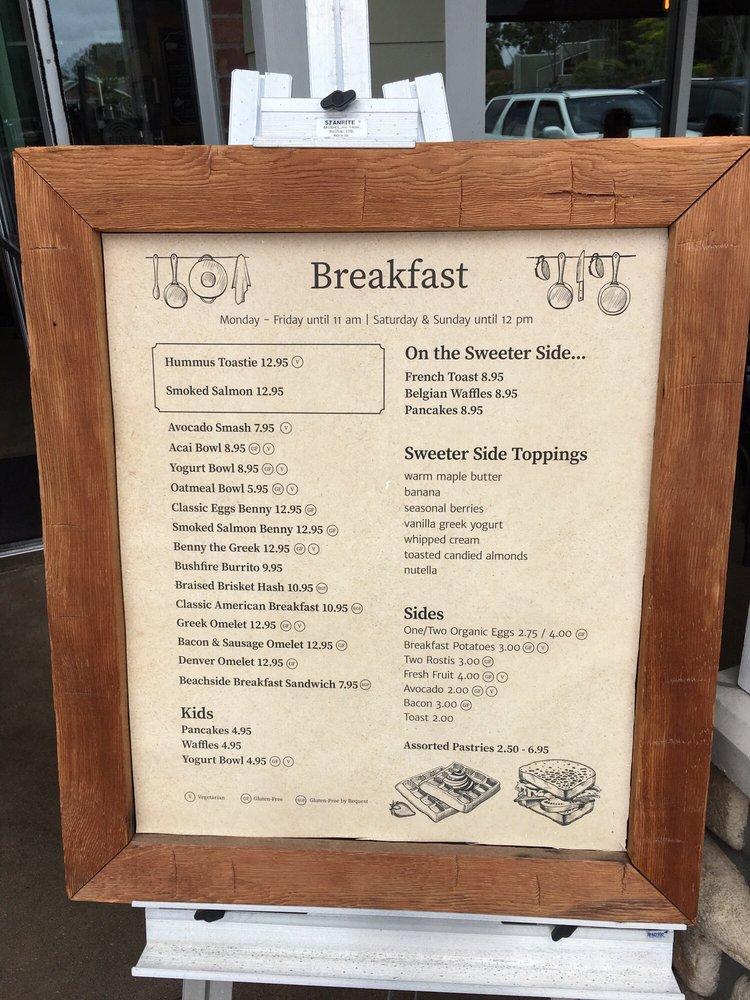 STANRITE
Breakfast
Monday - Friday until 11 am | Saturday & Sunday until 12 pm
Hummus Toastie 12.95 V
Smoked Salmon 12.95
Avocado Smash 7.95 V
Acai Bowl 8.95 GF V
Yogurt Bowl 8.95 GF V
Oatmeal Bowl 5.95 GF V
Classic Eggs Benny 12.95 GF
Smoked Salmon Benny 12.95 GF
Benny the Greek 12.95 GF V
Bushfire Burrito 9.95
Braised Brisket Hash 10.95 RGF
Classic American Breakfast 10.95 RGF
Greek Omelet 12.95 GF V
Bacon & Sausage Omelet 12.95 GF
Denver Omelet 12.95 GF
Beachside Breakfast Sandwich 7.95 RGF
Kids
Pancakes 4.95
Waffles 4.95
Yogurt Bowl 4.95 GF V
V Vegetarian GF Gluten-Free RGF Gluten-Free by Request
On the Sweeter Side...
French Toast 8.95
Belgian Waffles 8.95
Pancakes 8.95
Sweeter Side Toppings
warm maple butter
banana
seasonal berries
vanilla greek yogurt
whipped cream
toasted candied almonds
nutella
Sides
One/Two Organic Eggs 2.75 / 4.00 GF
Breakfast Potatoes 3.00 GF V
Two Rostis 3.00 GF
Fresh Fruit 4.00 GF V
Avocado 2.00 GF V
Bacon 3.00 GF
Toast 2.00
Assorted Pastries 2.50 - 6.95